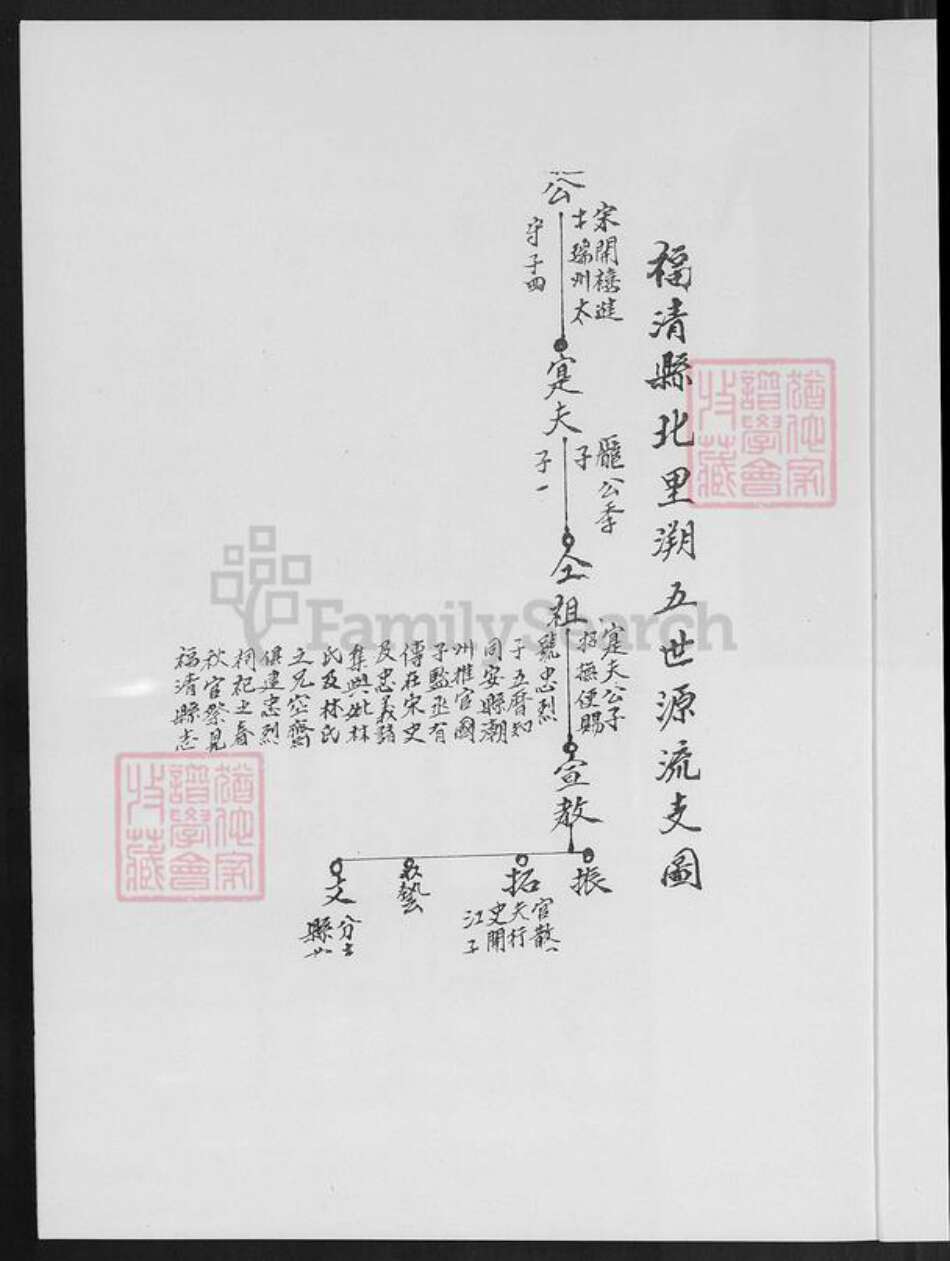 福清縣北里溯五世源流支圖
公
宋開禧進
士瑞州太
守子四
寔夫
龐公季
子
子一
全祖
寔夫公子
招撫使賜
號忠烈
子五曆知
同安縣潮
州推官國
子監丞有
傳在宋史
及忠義諸
集與妣林
氏及林氏
之兄空齋
俱建忠烈
祠祀之春
秋官祭見
福清縣志
宣教
振
拓
官散
夫行
史開
江子
藝
文
分
縣
譜學會
收藏
譜學會
收藏
FamilySearch